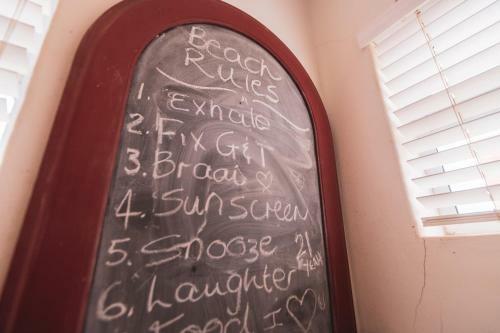 Beach
Rules
1. Exhale
2. Fix G&T
3. Braai ♡
4. Sunscreen
5. Snooze
6. Laughter